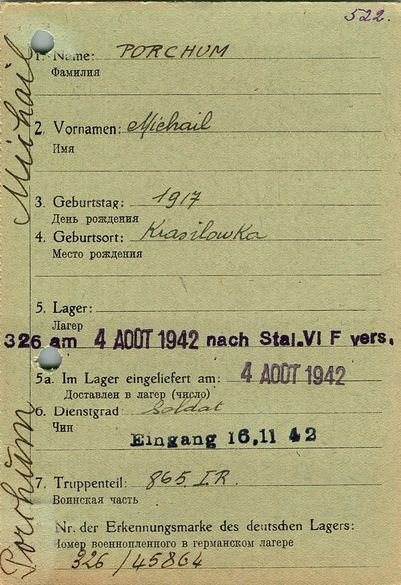 522.
1. Name: PORCHUM
Фамилия
2. Vornamen: Michail
Имя
3. Geburtstag: 1917
День рождения
4. Geburtsort: Krasilowka
Место рождения
5. Lager:
Лагер
326 am 4 AOÛT 1942 nach Stal. VI F vers.
5a. Im Lager eingeliefert am: 4 AOÛT 1942
Доставлен в лагер (число)
6. Dienstgrad: Soldat
Чин
Eingang 16.11 42
7. Truppenteil: 865 I.R.
Воинская часть
Nr. der Erkennungsmarke des deutschen Lagers:
Номер военнопленного в германском лагере
326/45864
Porchum Michail